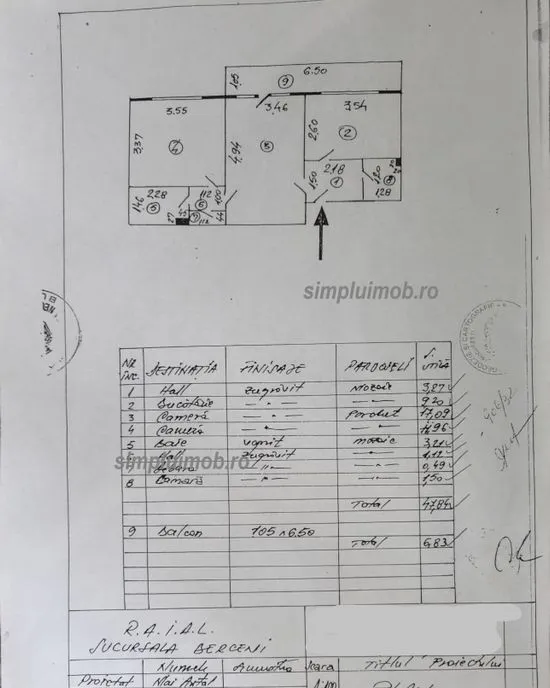 6.50
1.05
9
3.55
3.46
3.54
3.37
4
4.94
3
2.60
2
2.18
1.50
1
1.20
8
1.28
2.28
1.46
5
1.12
6
1.00
45
27
7
1.12
44
simpluimob.ro
NR. INC. DESTINAȚIA FINISAJE PARDOSELI S. UTILĂ
1 Hall zugrăvit mozaic 3,27
2 Bucătărie —"— —"— 9,20
3 Cameră —"— Parchet 17,09
4 Cameră —"— —"— 11,96
5 Baie vopsit mozaic 3,21
simpluimob.ro
6 Hall zugrăvit —"— 1,12
7 —"— —"— 0,49
8 Camară —"— —"— 1,50
Total 47,84
9 Balcon 1,05 x 6.50
Total 6,83
R.A.I.A.L.
SUCURSALA BERCENI
Numele Scara Titlul Proiectului
Proiectat